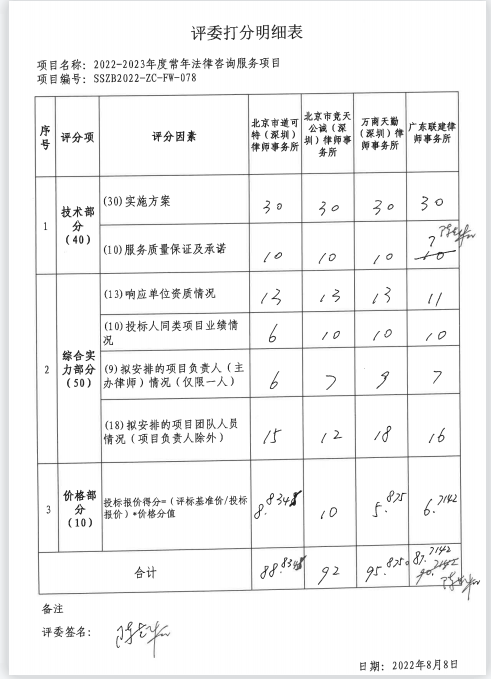 评委打分明细表
项目名称: 2022-2023年度常年法律咨询服务项目
项目编号: SSZB2022-ZC-FW-078
序号 评分项 评分因素 北京市道可特（深圳）律师事务所 北京市竞天公诚（深圳）律师事务所 万商天勤（深圳）律师事务所 广东联建律师事务所
1 技术部分（40） (30)实施方案 30 30 30 30
(10)服务质量保证及承诺 10 10 10 7 10
2 综合实力部分（50） (13)响应单位资质情况 13 13 13 11
(10)投标人同类项目业绩情况 6 10 10 10
(9)拟安排的项目负责人（主办律师）情况（仅限一人） 6 7 9 7
(18)拟安排的项目团队人员情况（项目负责人除外） 15 12 18 16
3 价格部分（10） 投标报价得分=（评标基准价/投标报价）*价格分值 8.834 10 5.875 6.7142
合计 88.834 92 95.875 87.7142
备注
评委签名:
日期: 2022年8月8日